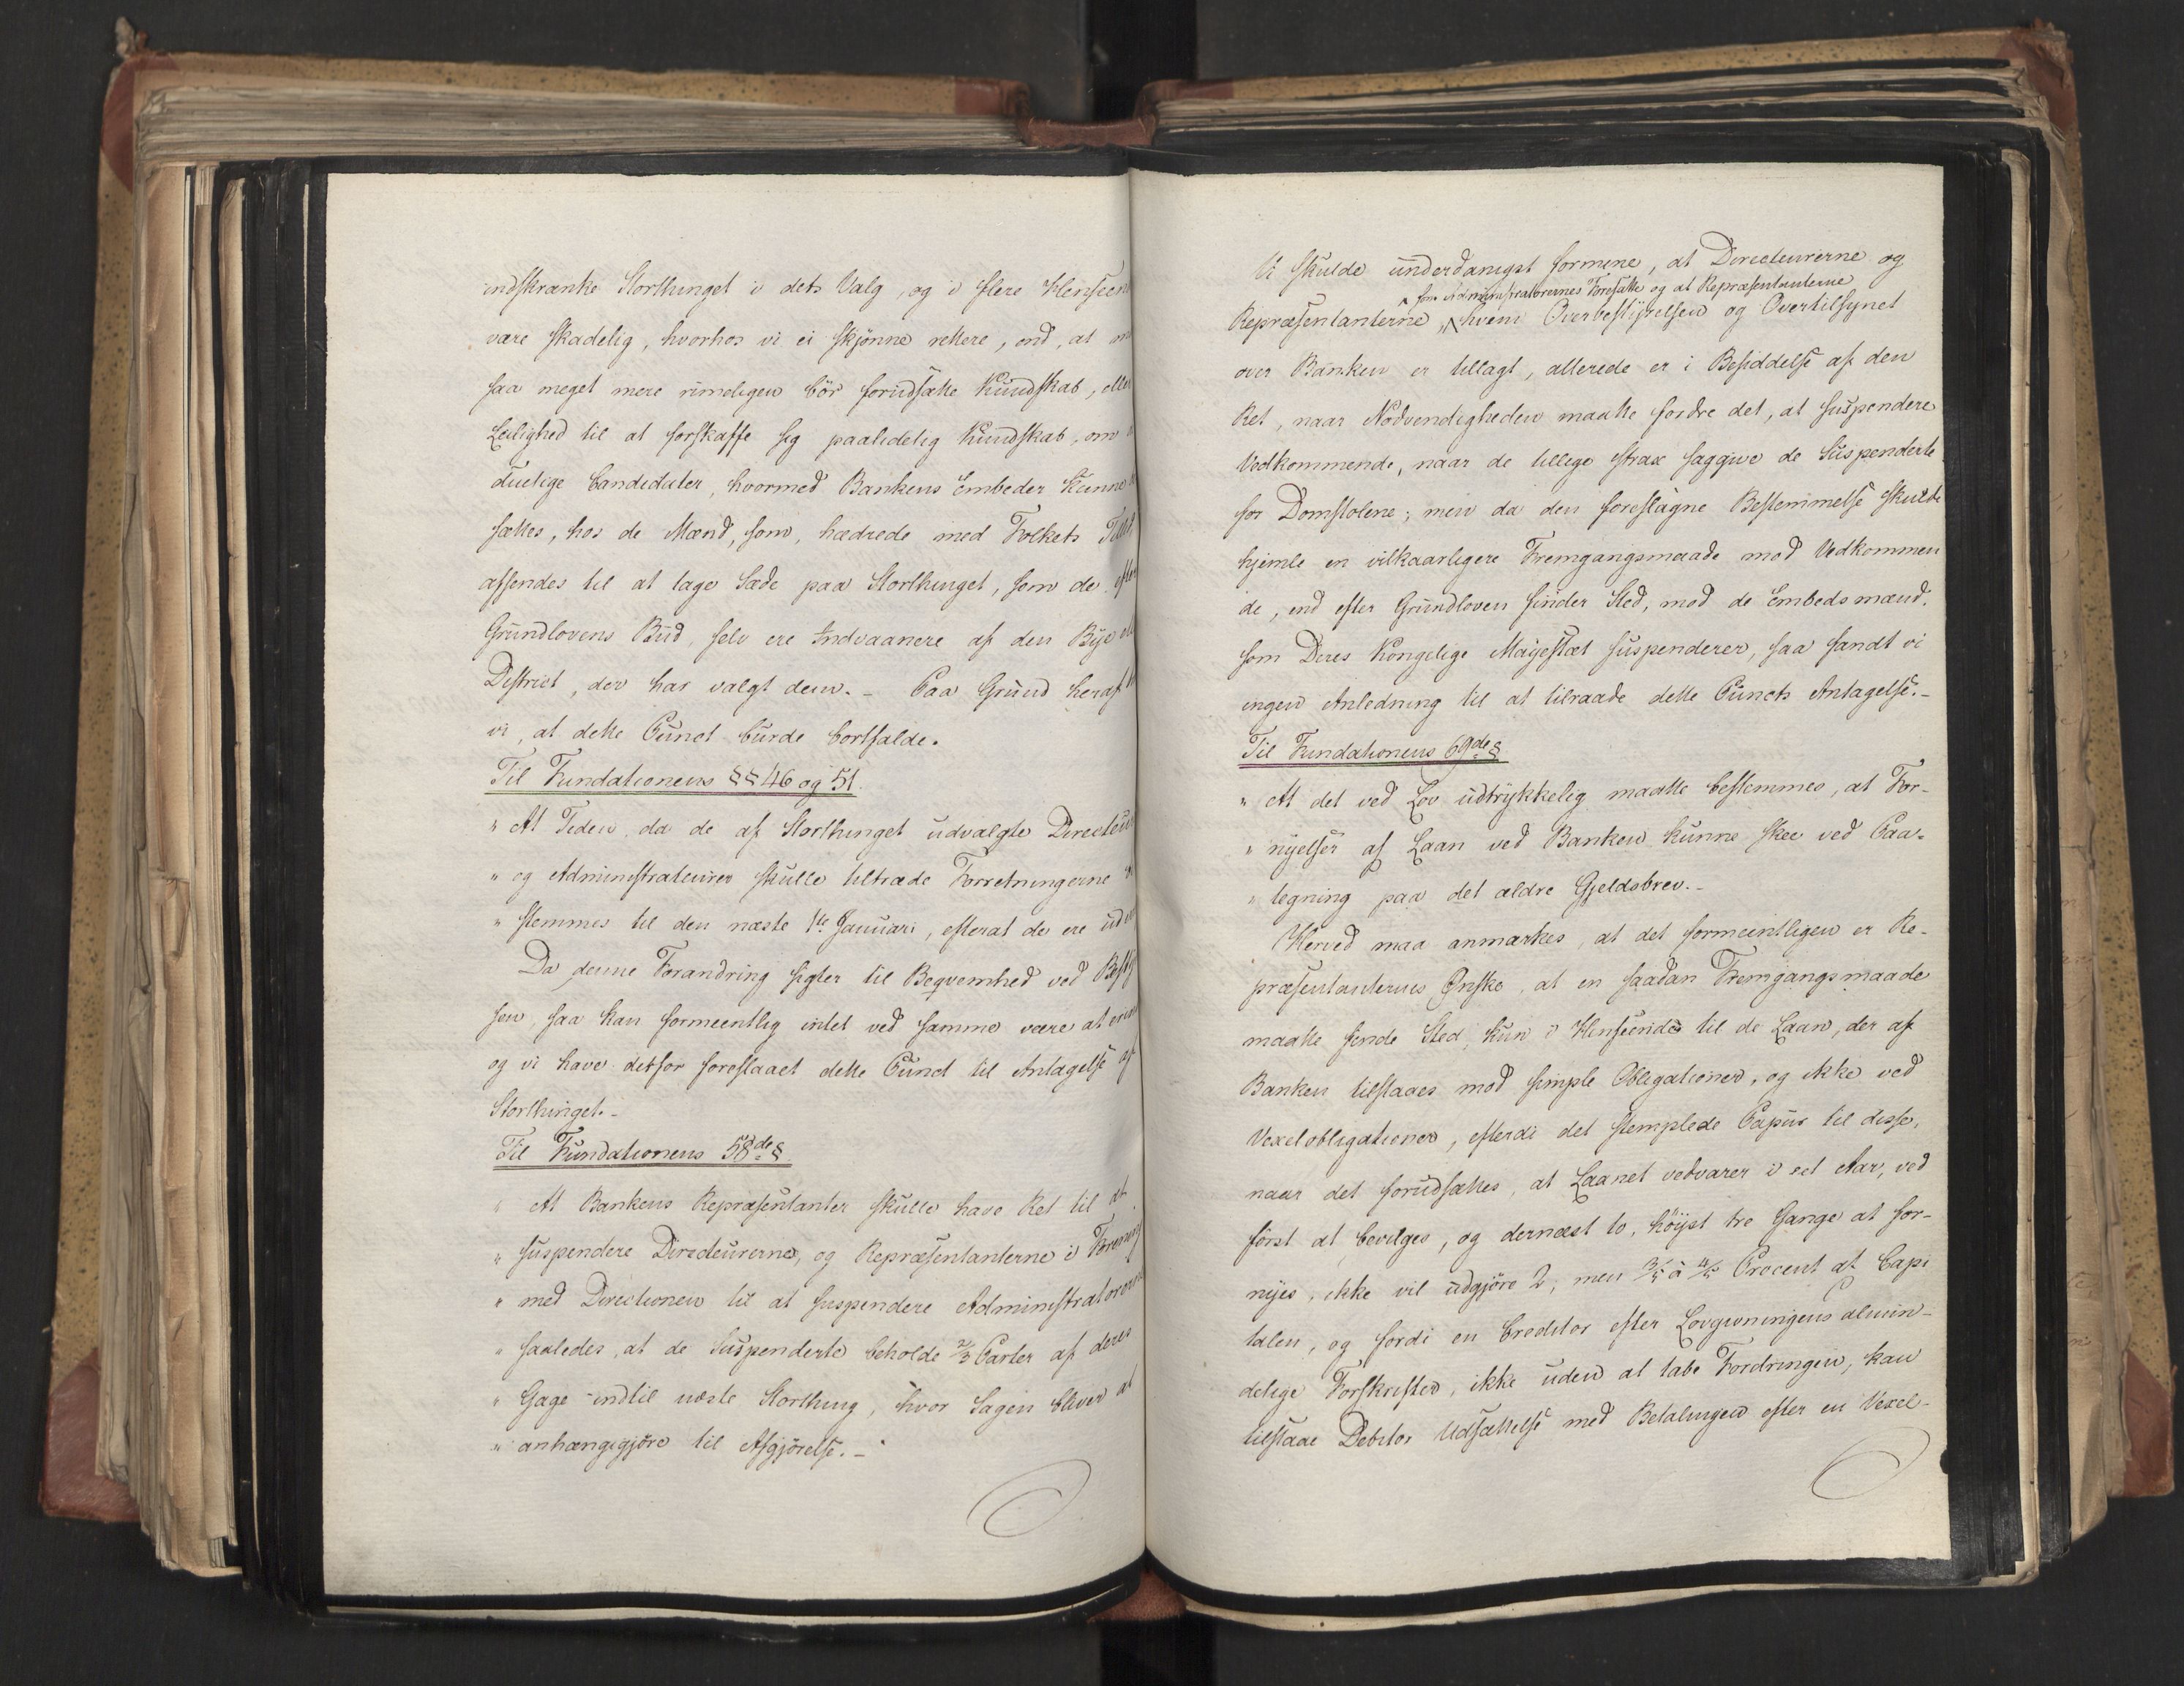 indskrænke Storthinget i dets Valg, og i flere Henseen
være skadelig, hvorhos vi ei skjönne rettere, end, at
saa meget mere rimeligen bör forudsætte Kundskab, eller
Leilighed til at forskaffe sig paalidelig Kundskab, om
duelige Candidater, hvormed Bankens Embeder kunne
sættes, hos de Mænd, som, hædrede med Folkets
afsendes til at tage Sæde paa Storthinget, som de efter
Grundlovens Bud, selv ere Indvaanere af den Bye
District, der har valgt dem. – Paa Grund heraf
vi, at dette Punct burde bortfalde.
Til Fundationens §§ 46 og 51.
" At Tiden, da de af Storthinget udvalgte Directeur
" og Administrateurer skulle tiltræde Forretningerne
" stemmes til den næste 1te Januari, efterat de ere
Da denne Forandring sigter til Beqvemhed ved
sen, saa kan formeentlig intet ved samme være at
og vi have derfor foreslaaet dette Punct til Antagelse af
Storthinget. –
Til Fundationens 58de §.
" At Bankens Repræsentanter skulle have Ret til at
" suspendere Directeurerne, og Repræsentanterne i Forening
" med Directionen til at suspendere Administratorerne
" saaledes, at de Suspenderte beholde 2/3 Parter af deres
" Gage indtil næste Storthing, hvor Sagen bliver at
" anhængiggjöre til Afgjörelse. –
Vi skulde underdanigst formene, at Directeurerne og
som Administratorernes Foresatte og at Repræsentanterne
Repræsentanterne, hvem Overbestyrelsen og Overtilsynet
over Banken er tillagt, allerede er i Besiddelse af den
Ret, naar Nödvendigheden maatte fordre det, at suspendere
Vedkommende, naar de tillige strax saggive de Suspenderte
for Domstolene; men da den foreslagne Bestemmelse skulde
hjemle en vilkaarligere Fremgangsmaade mod Vedkommen
de, end efter Grundloven finder Sted, mod de Embedsmænd,
som Deres Kongelige Majestæt suspenderer, saa fandt vi
ingen Anledning til at tilraade dette Puncts Antagelse. –
Til Fundationens 69de §
" At det ved Lov udtrykkelig maatte bestemmes, at For-
" nyelser af Laan ved Banken kunne skee ved Paa-
" tegning paa det ældre Gjeldsbrev. –
Herved maa anmærkes, at det formeintligen er Re-
præsentanternes Ønske, at en saadan Fremgangsmaade
maatte finde Sted, kun i Henseende til de Laan, der af
Banken tilstaaes mod simple Obligationer, og ikke ved
Vexelobligationer, efterdi det stemplede Papiir til disse,
naar det forudsættes, at Laanet vedvarer i eet Aar, ved
först at bevilges, og dernæst to, höijst tre Gange at for-
nyes, ikke vil udgjöre 2, men 3/5 à 4/5 Procent af Capi
talen, og fordi en Creditor efter Lovgivningens almin-
delige Forskrifter, ikke uden at tabe Fordringen, kan
tilstaae Debitor Udsættelse med Betalingen efter en Vexel-